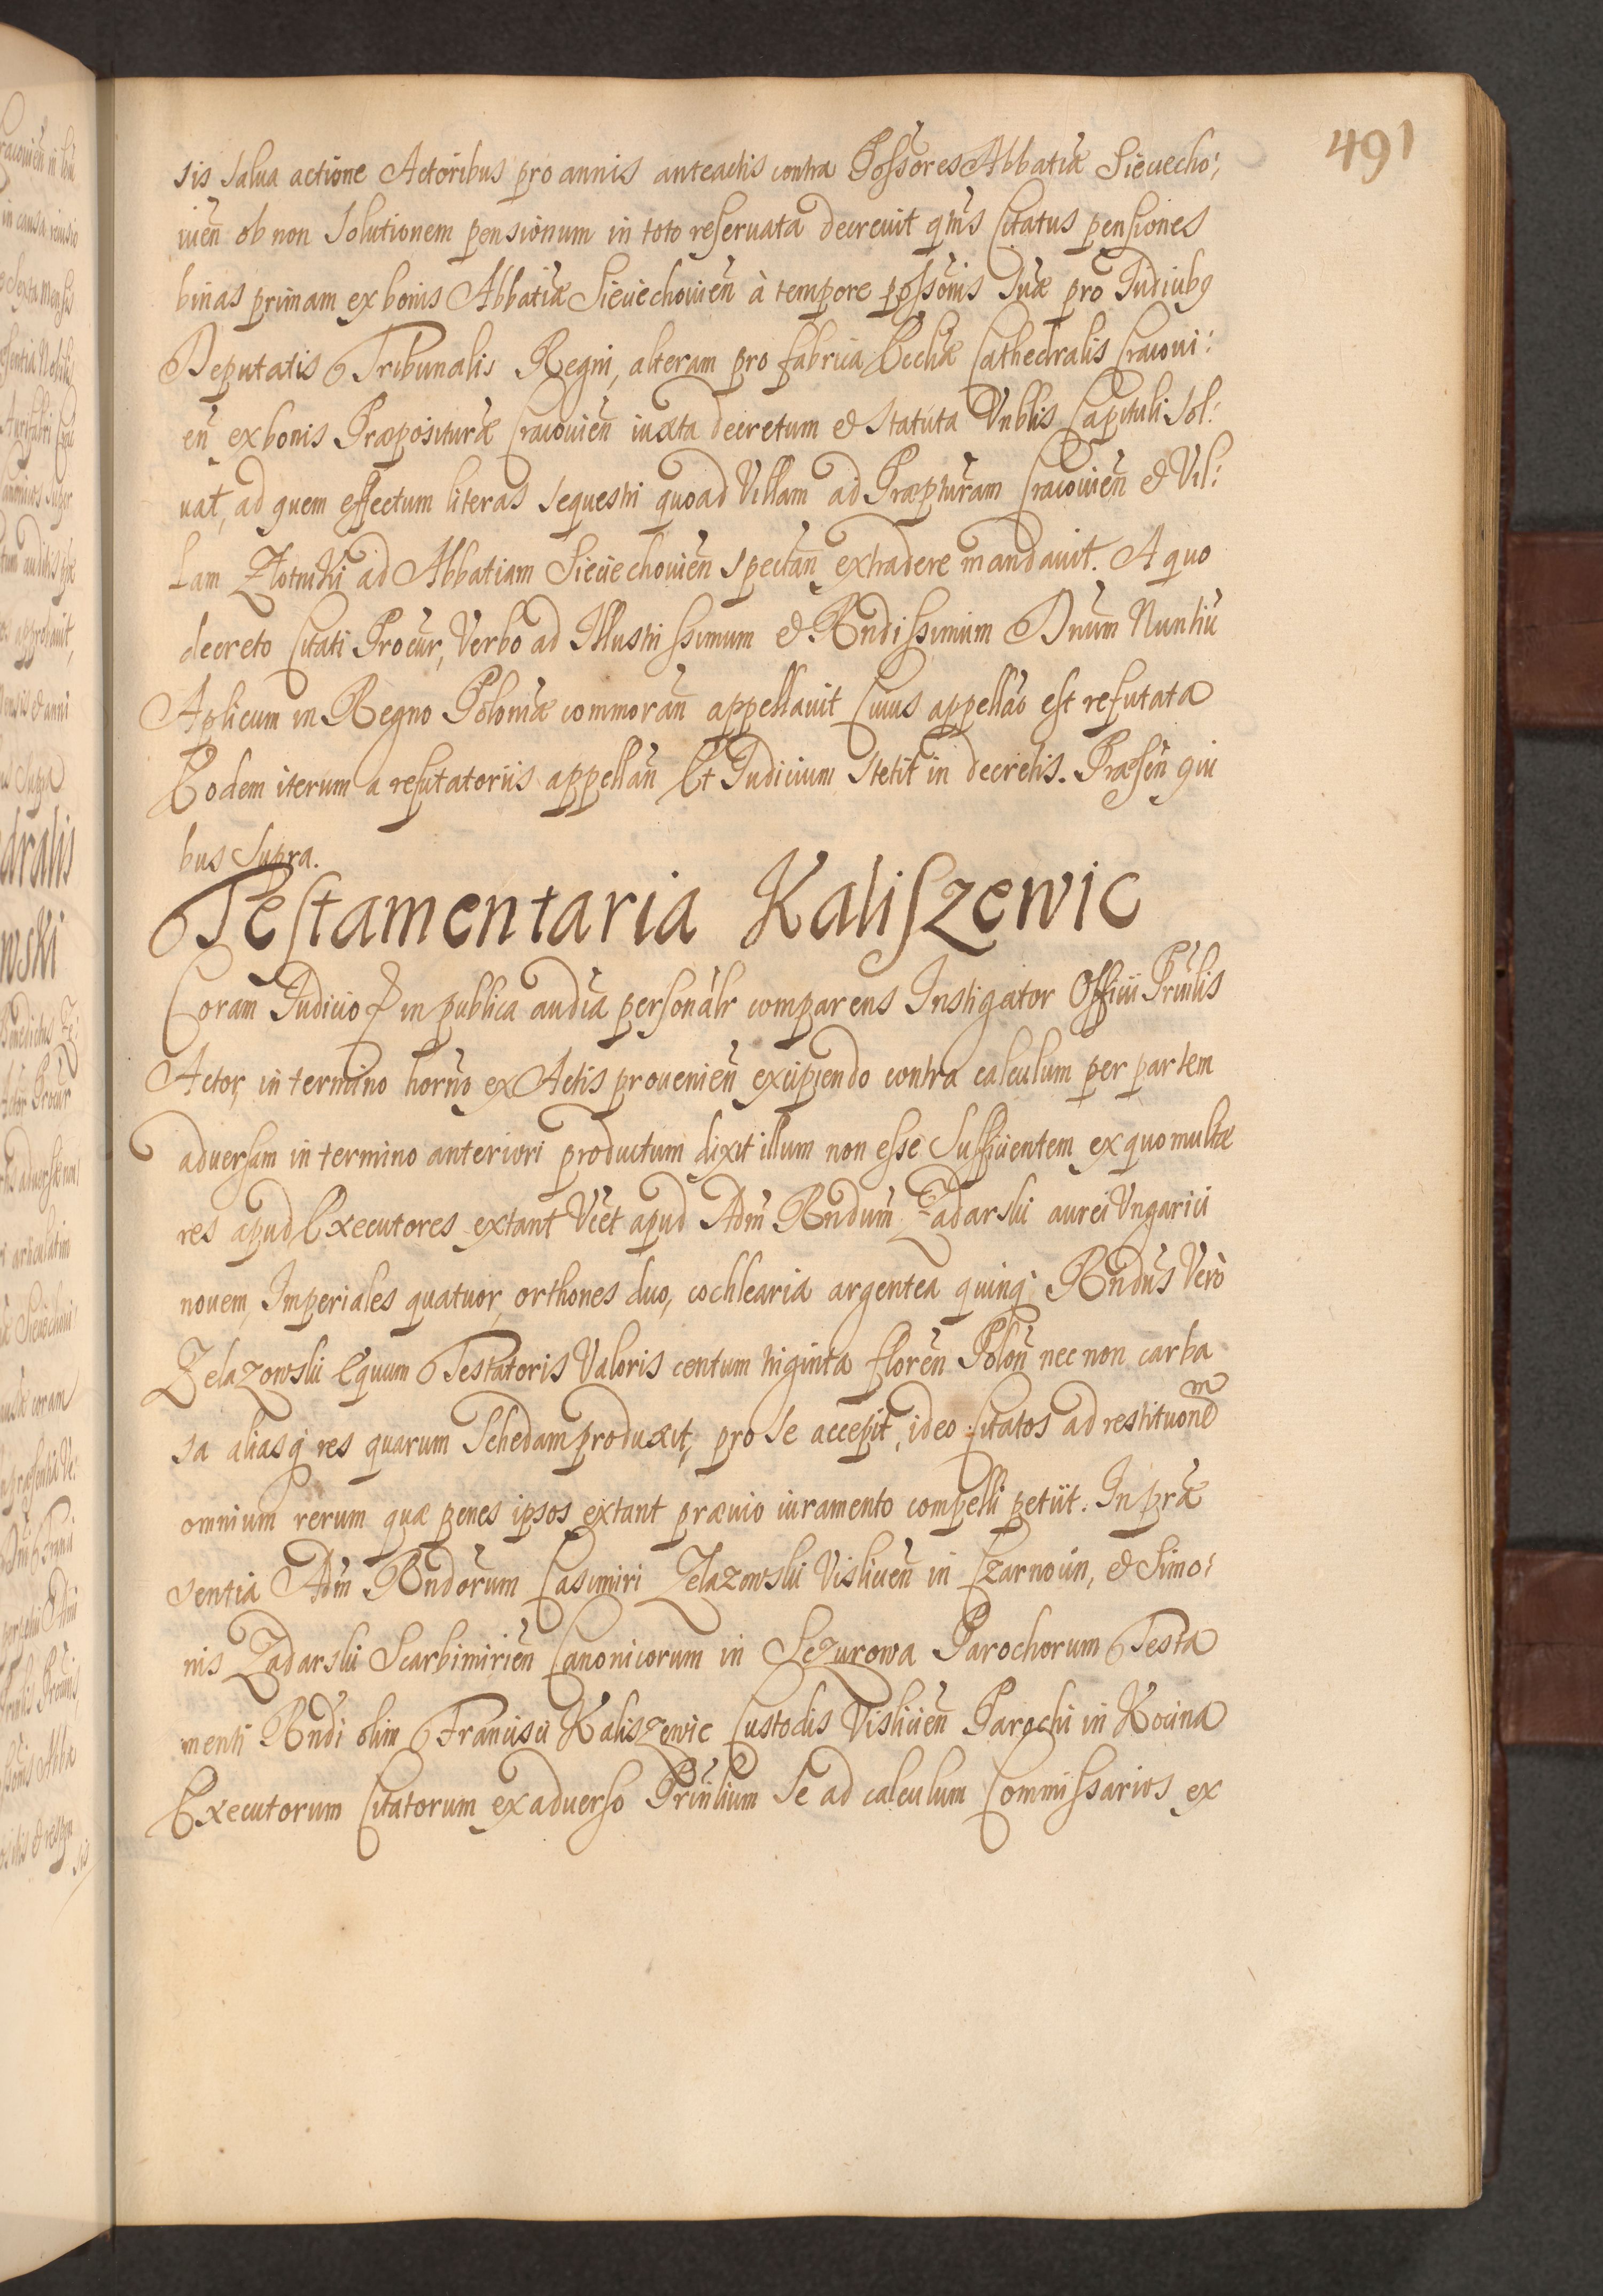 491
sis salua actione Actoribus pro annis anteactis contra Possores Abbatiæ Sieciecho:
uien̄ ob non solutionem pensionum in toto reseruata decreuit qm̄s Citatus pensiones
binas primam ex bonis Abbatiæ Sieciechouien̄ à tempore possōnis suæ pro Iudicibꝯ
Deputatis Tribunalis Regni, alteram pro fabrica Eccliæ Cathedralis Cracoui:
en̄ ex bonis Præposituræ Cracouien̄ iuxta decretum & Statuta Vnblis Capituli sol:
uat, ad quem effectum literas sequestri quoad Villam ad Præpturam Cracouien̄ & Vil:
lam Zlotniki ad Abbatiam Sieciechouien̄ spectan̄ extradere mandauit. A quo
decreto Citati Procur, Verbo ad Illustrissimum & Rndissimum Dnum Nuntiū
Aplicum in Regno Poloniæ commoran̄ appellauit Cuius appellāo est refutata
Eodem iterum a refutatoriis appellan̄ Et Iudicium stetit in decretis. Præsen̄ qui
bus supra.
Testamentaria Kaliszewic
Coram Iudicio & in publica audīa personālr comparens Instigator Officii Prīnlis
Actor, in termino horno ex Actis prouenien̄ excipiendo contra calculum per partem
aduersam in termino anteriori productum dixit illum non esse sufficientem ex quo multæ
res apud Executores extant Vcēt apud Adm̄ Rndum Zadarski aurei Vngarici
nouem, Imperiales quatuor, orthones duo, cochlearia argentea quinq; Rndus Verò
Zelazowski Equum Testatoris Valoris centum triginta floren̄ Polon̄ nec non carba
sa aliasq; res quarum Schedam produxit, pro se accepit, ideo Citatos ad restituonem
omnium rerum quæ penes ipsos extant præuio iuramento compelli petiit. In præ
sentia Adm̄ Rndorum Casimiri Zelazowski Vislicien̄ in Czarnocin, & Simo:
nis Zadarski Scarbimirien̄ Canonicorum in Sczurowa Parochorum Testa
menti Rndi olim Francisci Kaliszewic Custodis Vislicien̄ Parochi in Kocina
Executorum Citatorum ex aduerso Prīnlium se ad calculum Commissarios ex